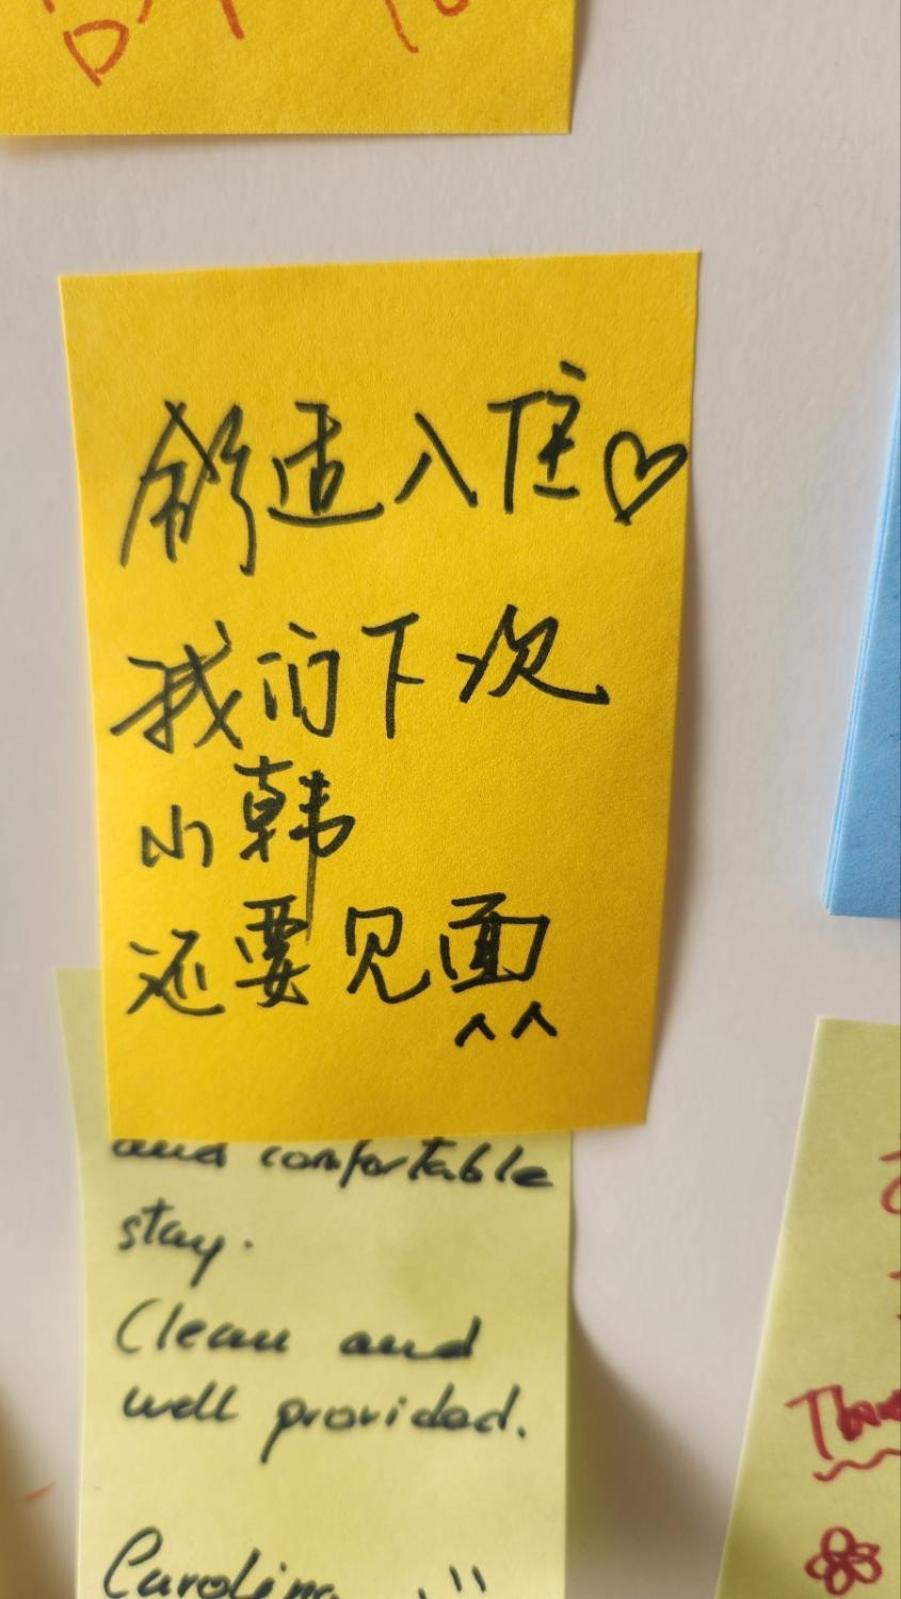 舒适入住♡
我的下次
小韩
还要见面
^^
and comfortable
stay.
Clean and
well provided.
Carolina